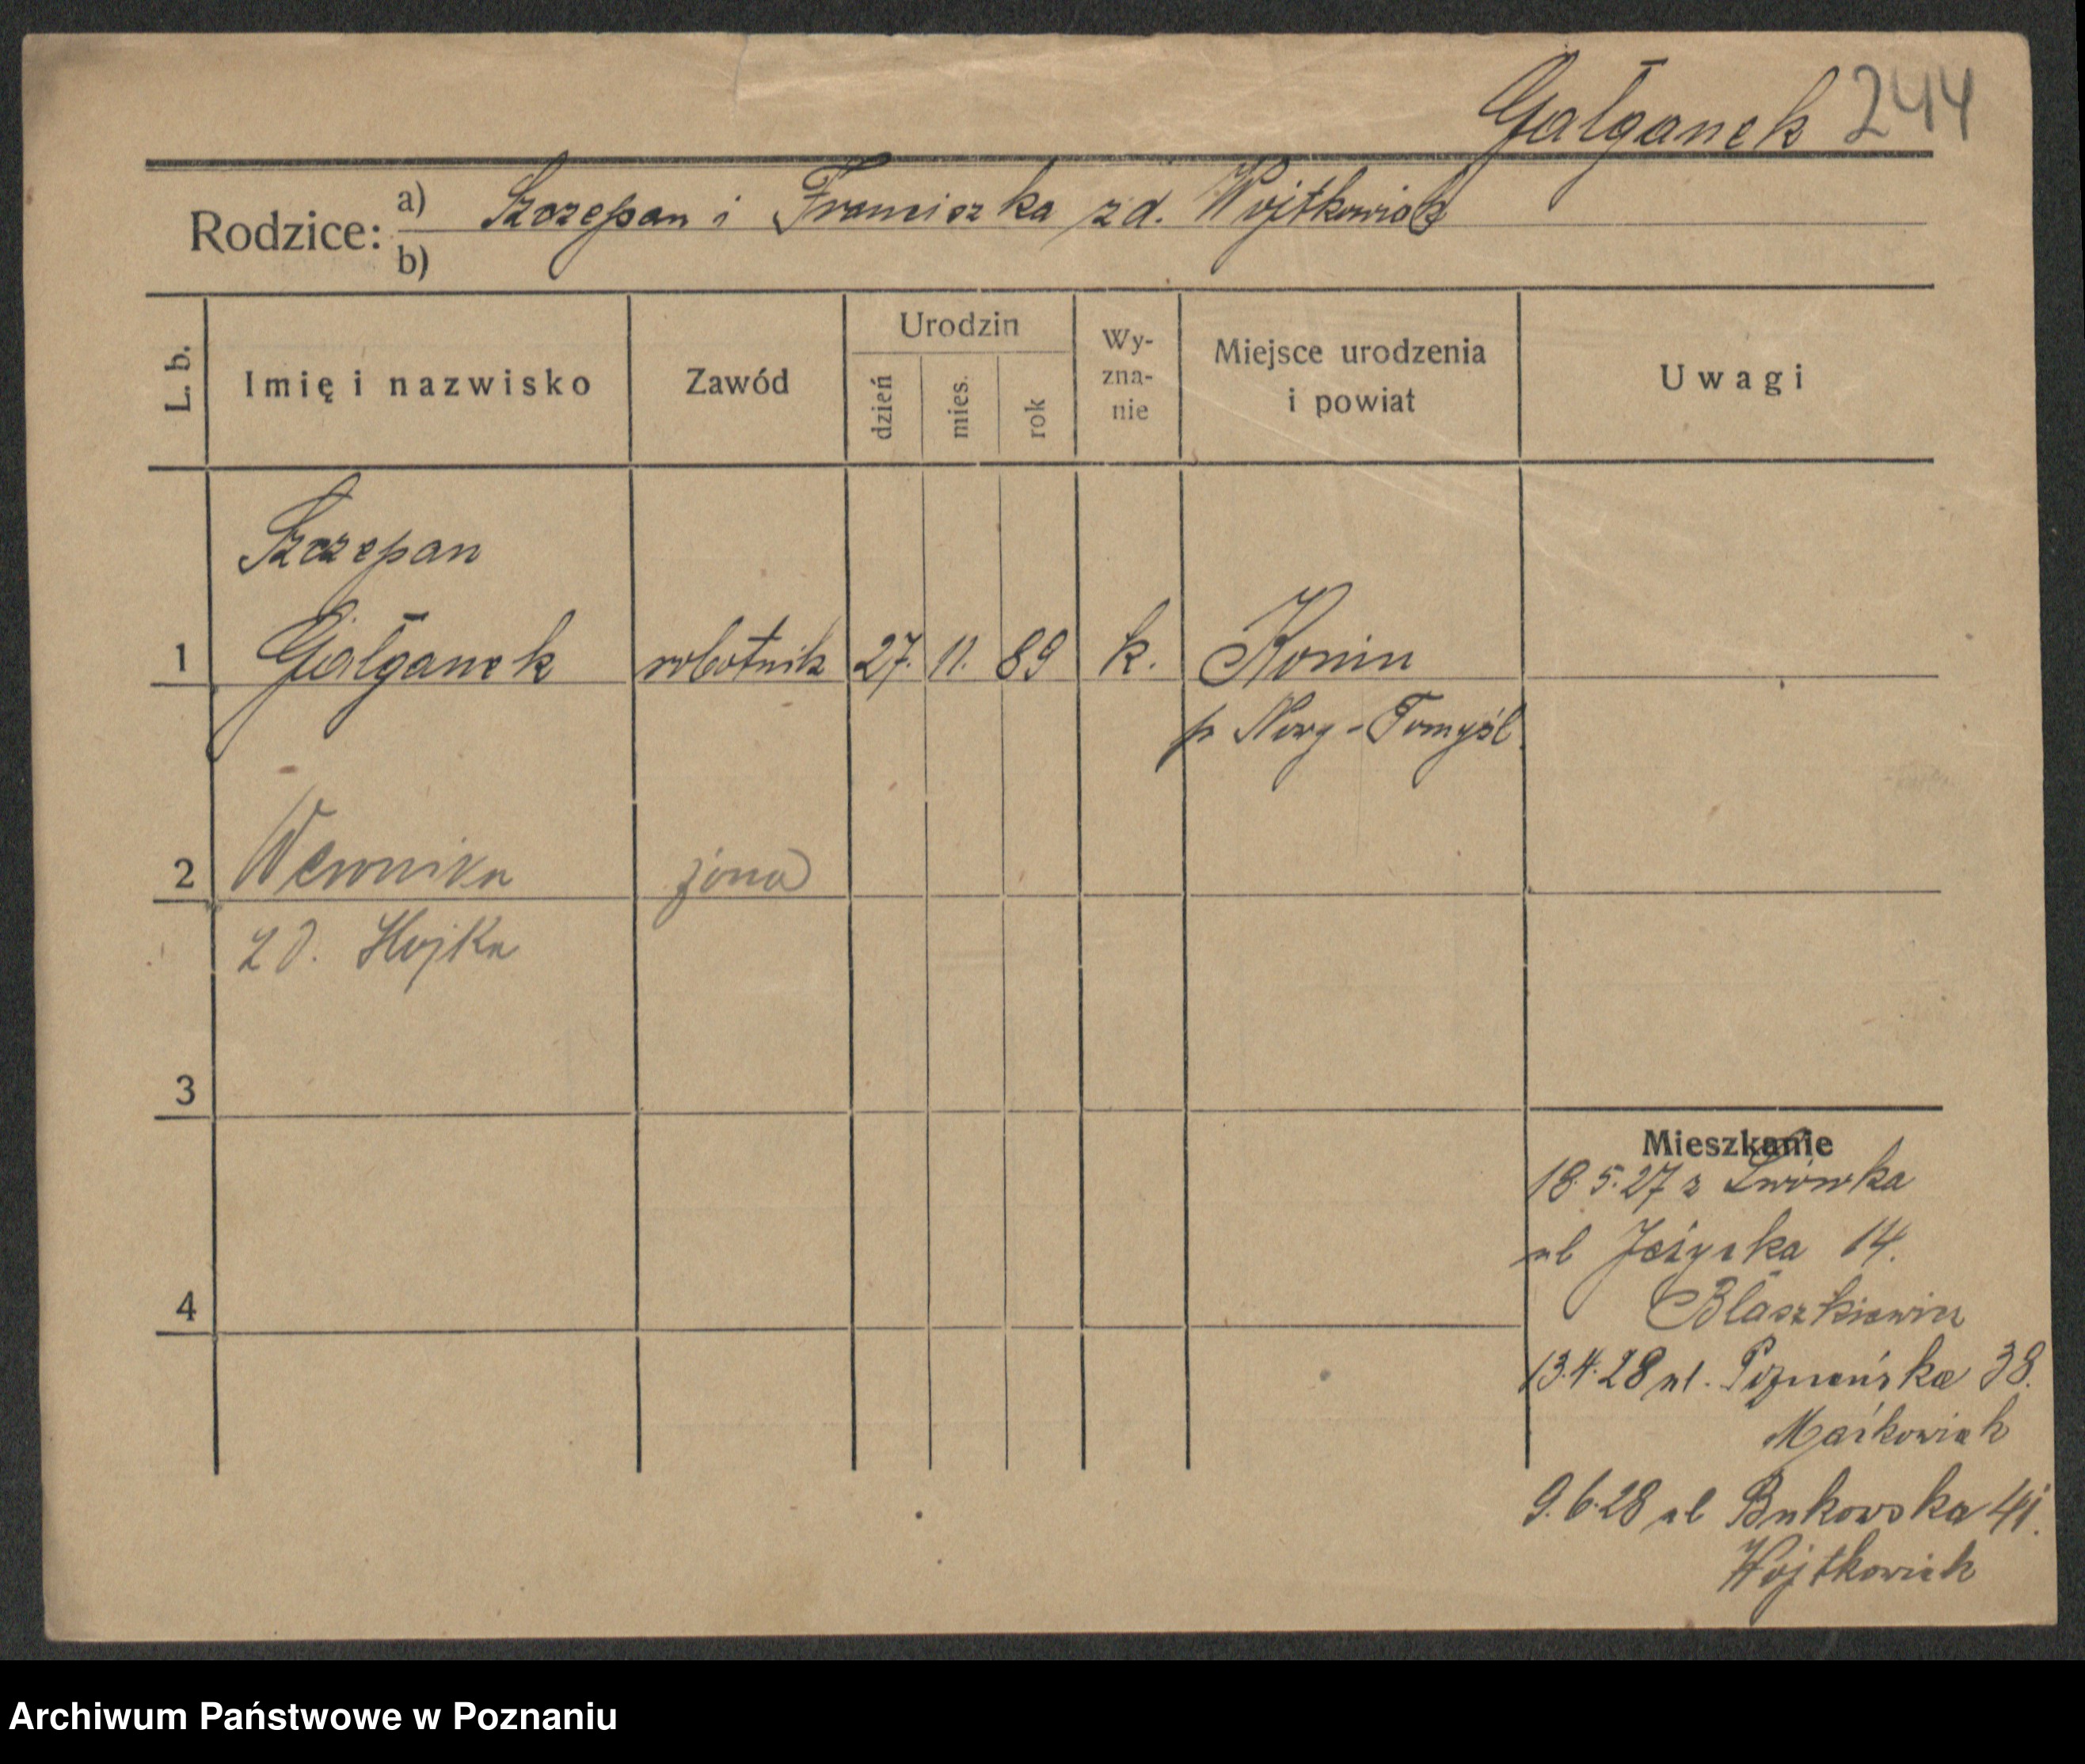 Gałganek 244
Rodzice: a) Szczepan i Franciszka zd. Wojtkowiak
b)
L. b. Imię i nazwisko Zawód Urodzin dzień mies. rok Wy-zna-nie Miejsce urodzenia i powiat Uwagi
Szczepan
1 Gałganek robotnik 27. 11. 89 k. Konin
p Nowy-Tomyśl
2 Weronika żona
zd. Hojka
3
Mieszkanie
18.5.27 z Lwówka
ul Jeżycka 14.
4 Błaszkiewicz
13.4.28 ul. Poznańska 38.
Maćkowiak
9.6.28 ul Bukowska 41.
Wojtkowiak
Archiwum Państwowe w Poznaniu